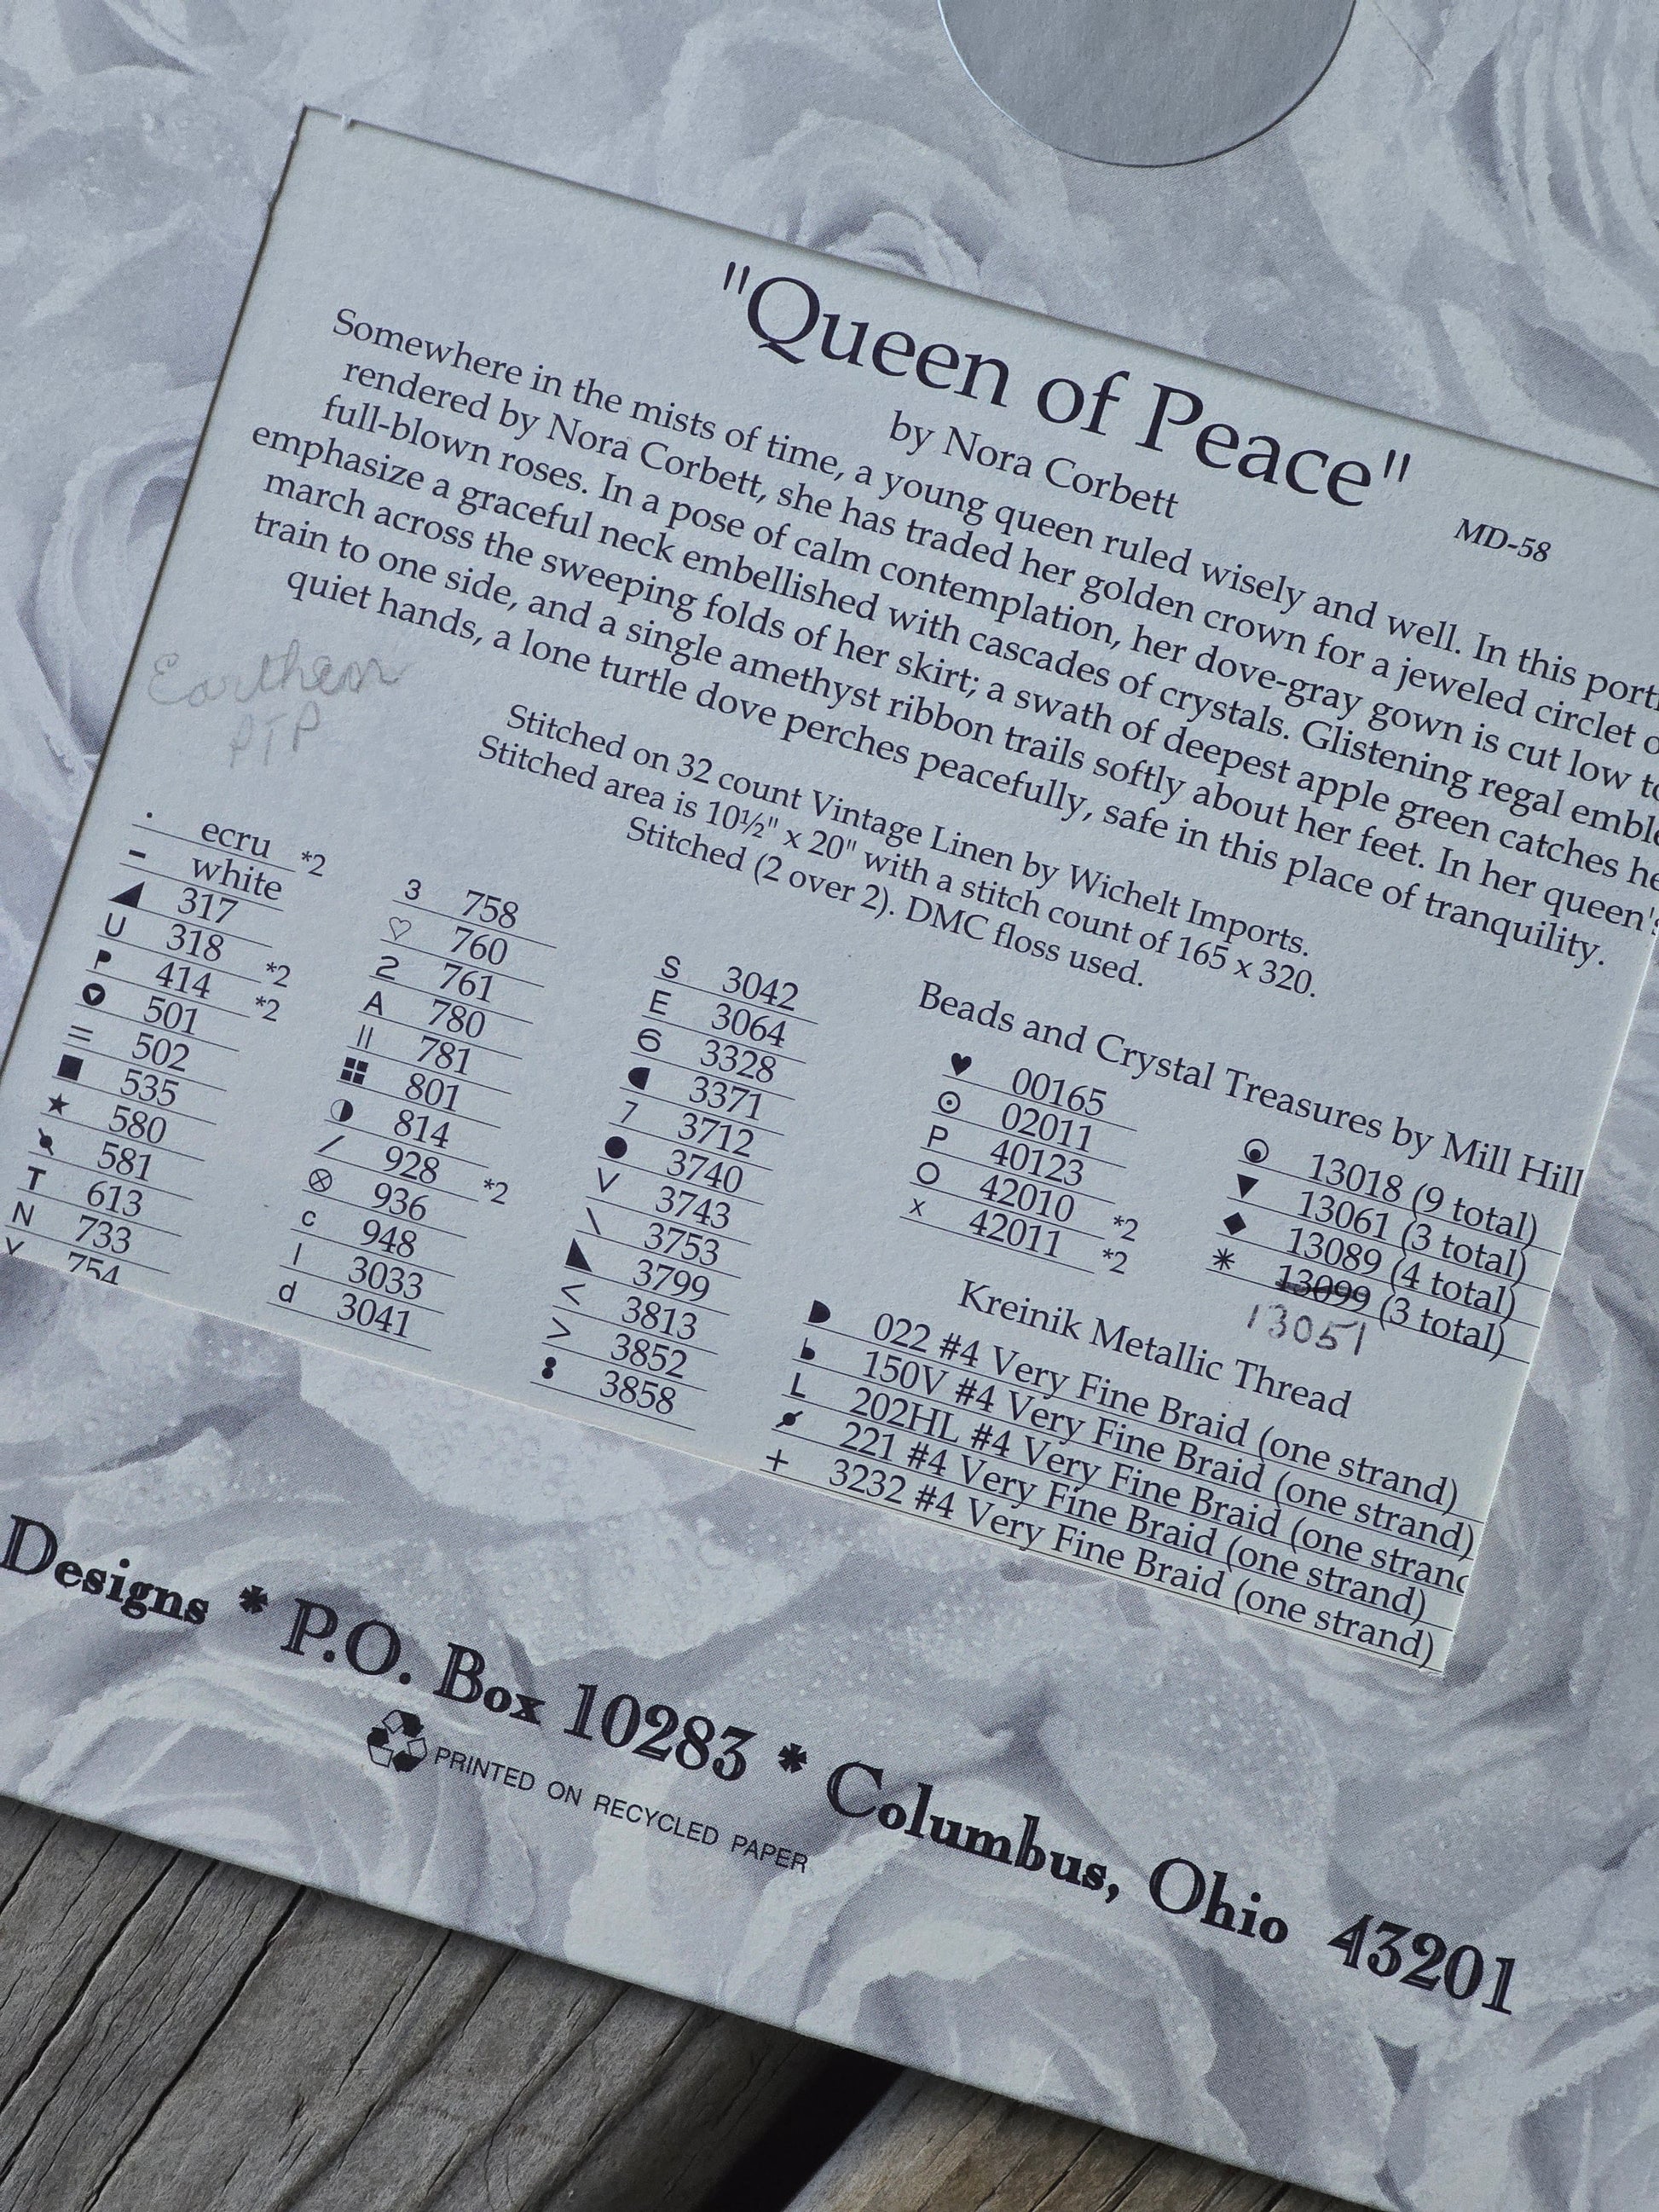 "Queen of Peace"
by Nora Corbett
MD-58
Somewhere in the mists of time, a young queen ruled wisely and well. In this
rendered by Nora Corbett, she has traded her golden crown for a jeweled circlet
full-blown roses. In a pose of calm contemplation, her dove-gray gown is cut low
emphasize a graceful neck embellished with cascades of crystals. Glistening regal
march across the sweeping folds of her skirt; a swath of deepest apple green catches
train to one side, and a single amethyst ribbon trails softly about her feet. In her queen's
quiet hands, a lone turtle dove perches peacefully, safe in this place of tranquility.
Earthen
PTP
Stitched on 32 count Vintage Linen by Wichelt Imports.
Stitched area is 10½" x 20" with a stitch count of 165 x 320.
Stitched (2 over 2). DMC floss used.
· ecru *2
- white
◢ 317
U 318 *2
414 *2
501
= 502
■ 535
★ 580
581
T 613
N 733
Y 754
3 758
♡ 760
2 761
A 780
|| 781
801
◑ 814
/ 928 *2
⊗ 936
c 948
| 3033
d 3041
S 3042
E 3064
6 3328
3371
7 3712
● 3740
V 3743
\ 3753
◣ 3799
< 3813
> 3852
3858
Beads and Crystal Treasures by Mill Hill
♥ 00165
⊙ 02011
P 40123
O 42010 *2
x 42011 *2
13018 (9 total)
▼ 13061 (3 total)
◆ 13089 (4 total)
✳ 13099 (3 total)
13051
Kreinik Metallic Thread
◗ 022 #4 Very Fine Braid (one strand)
150V #4 Very Fine Braid (one strand)
L 202HL #4 Very Fine Braid (one strand
221 #4 Very Fine Braid (one strand)
+ 3232 #4 Very Fine Braid (one strand)
Designs * P.O. Box 10283 * Columbus, Ohio 43201
PRINTED ON RECYCLED PAPER